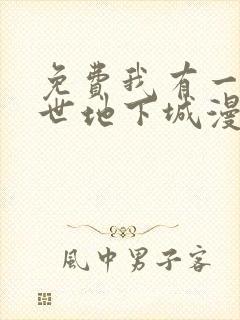 免費我有一
世地下城漫
風中男子客